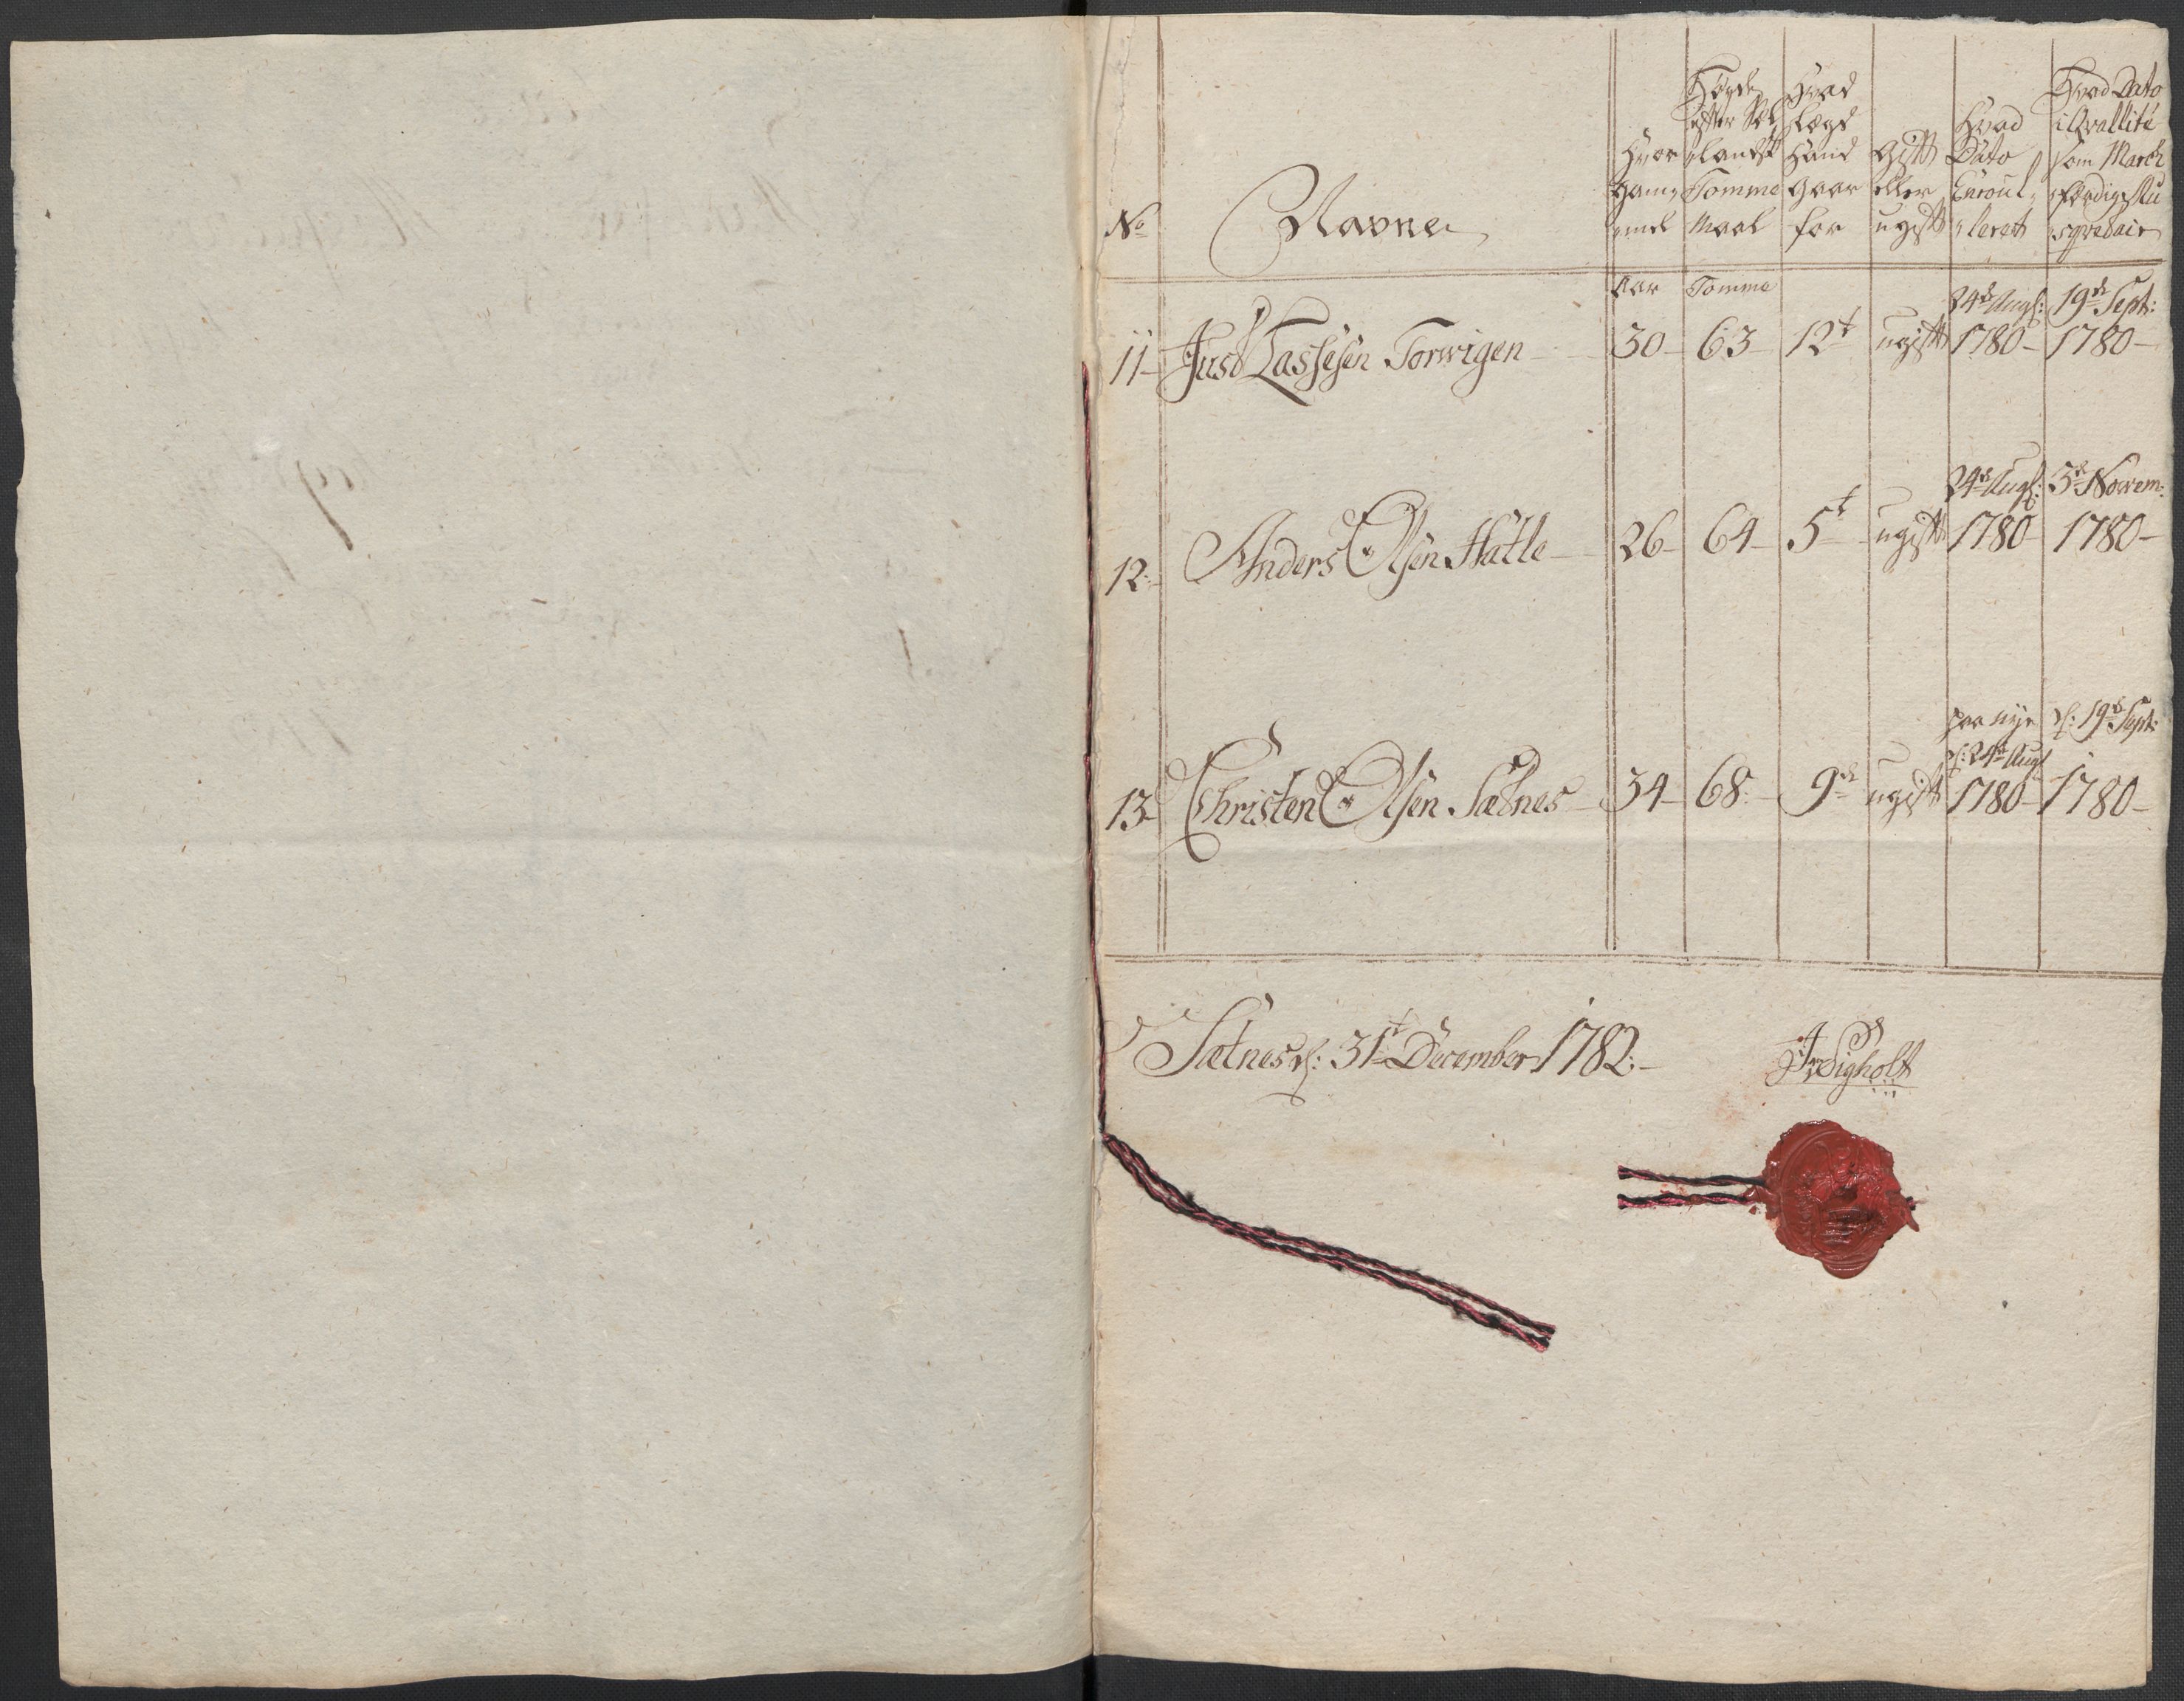 No
Navne
Hvor
gam,
mel
Høyde
efter Sæl
landsk
Tomme
Maal
Hvad
Lægd
Hand
gaar
for
gift
eller
ugift
Hvad
Dato
Enroul,
leret
Hvad Dato
i Qvallité
som March
færdig
Aar Tomme
11 Just Lassesen Torwigen 30 63 12t ugift 24d Aug: 1780 19de Sept: 1780
12 Anders Olsen Hatle 26 64 5t ugift 24d Aug: 1780 3d Novem: 1780
13 Christen Olsen Sætnes 34 68 9de ugift paa nye d: 24d Aug 1780 d: 19de Sept: 1780
Sætnes d: 31t December 1782
Sigholt